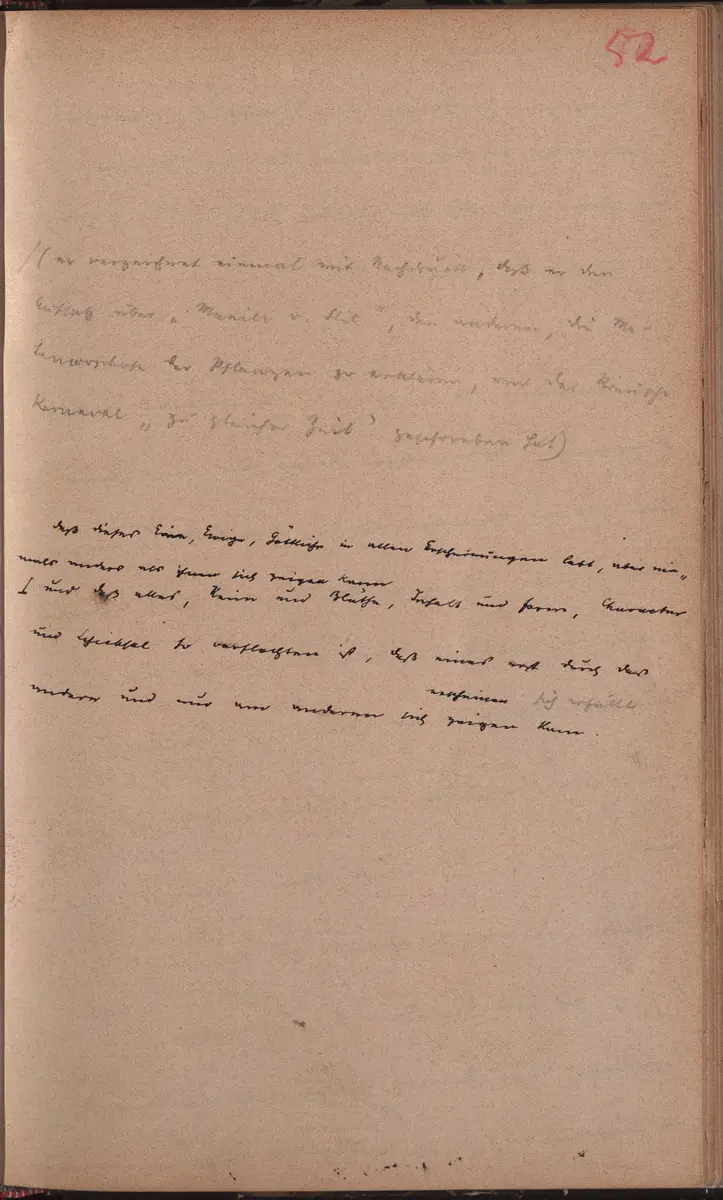 52
(er verzeichnet einmal mit Nachdruck, daß er den
Aufsatz über „Manier u. Stil“, den anderen, die Me-
tamorphose der Pflanzen zu erklären, und das Römische
Karneval „zu gleicher Zeit“ geschrieben hat)
daß dieses Eine, Ewige, Göttliche in allen Erscheinungen lebt, aber nie„
mals anders als sich zeigen kann
und daß alles, Keim und Blüthe, Inhalt und Form, Character
und Schicksal so verflochten ist, daß eines erst durch das
erscheinen sich erfüllt
andere und nur am anderen sich zeigen kann.